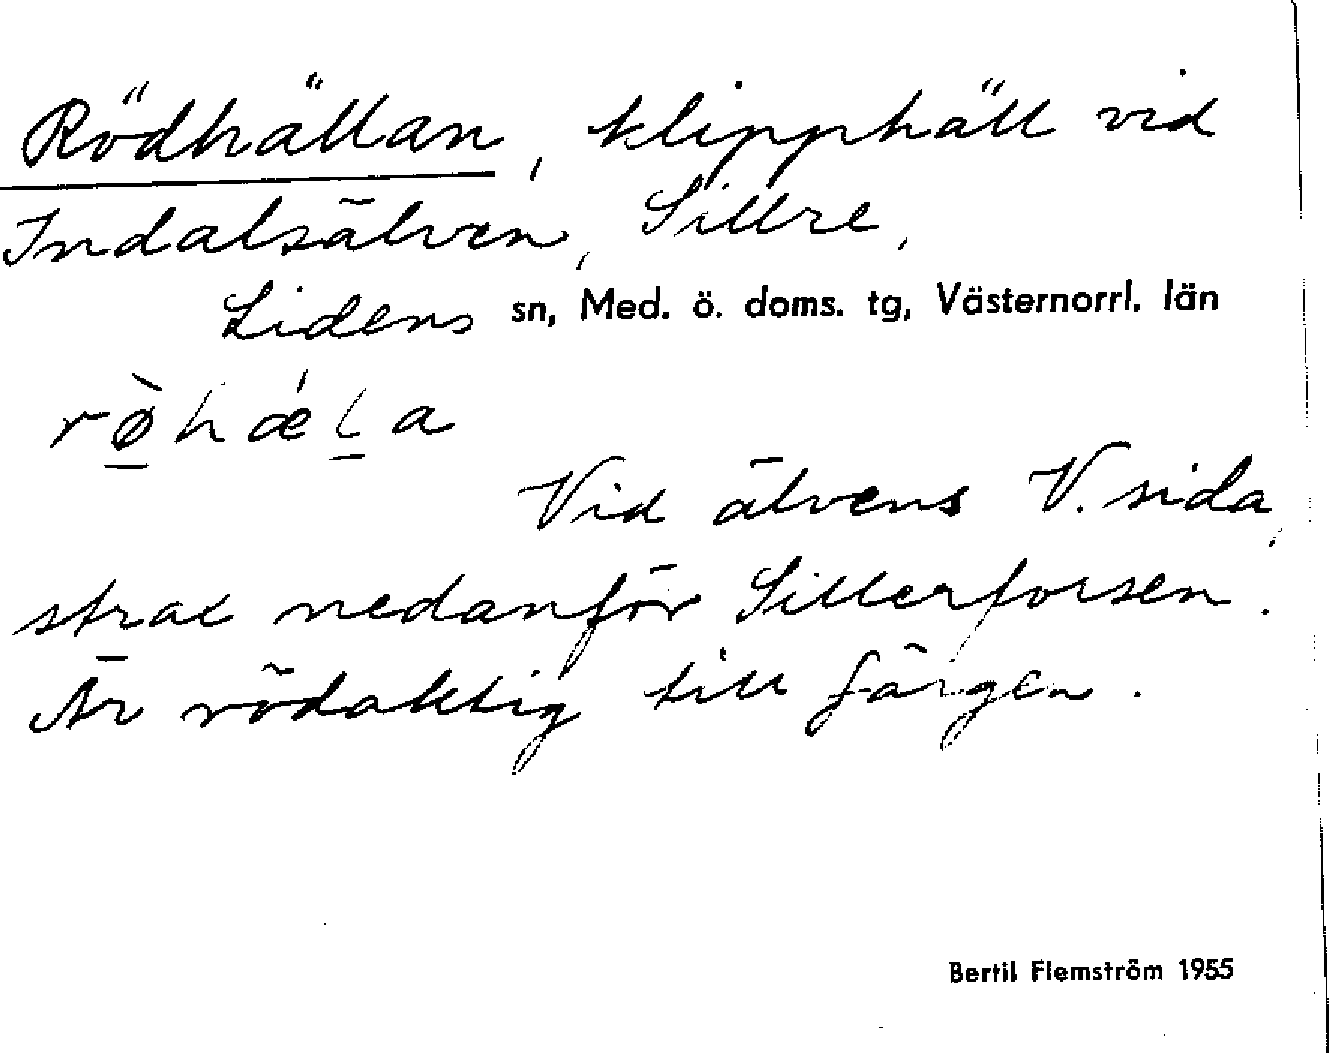 Rödhällan, klipphäll vid
Indalsälven, Sillre,
Lidens sn, Med. ö. doms. tg, Västernorrl. län
rø̱̀hǽḻa
Vid älvens V. sida,
strax nedanför Sillerforsen.
Är rödaktig till färgen.
Bertil Flemström 1955